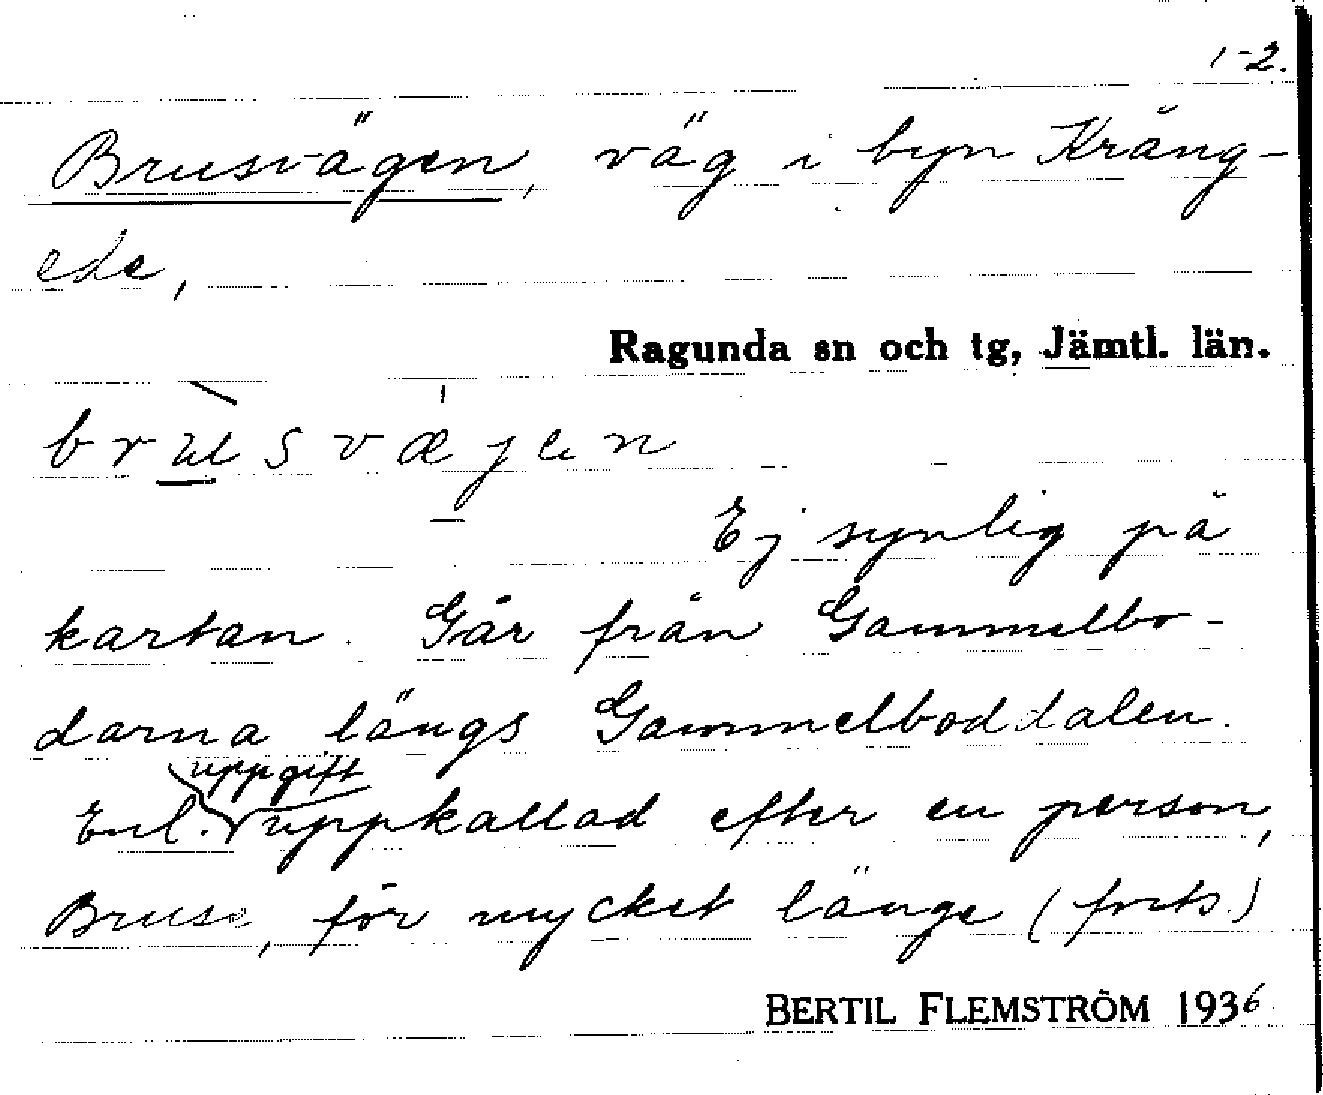 1-2.
Brusvägen, väg i byn Kräng-
ede,
Ragunda sn och tg, Jämtl. län.
brùsvæ̍jen
Ej synlig på
kartan. Går från Gammelbo-
darna längs Gammelboddalen.
uppgift
Enl. uppkallad efter en person,
Bruse, för mycket länge (forts.)
BERTIL FLEMSTRÖM 1936